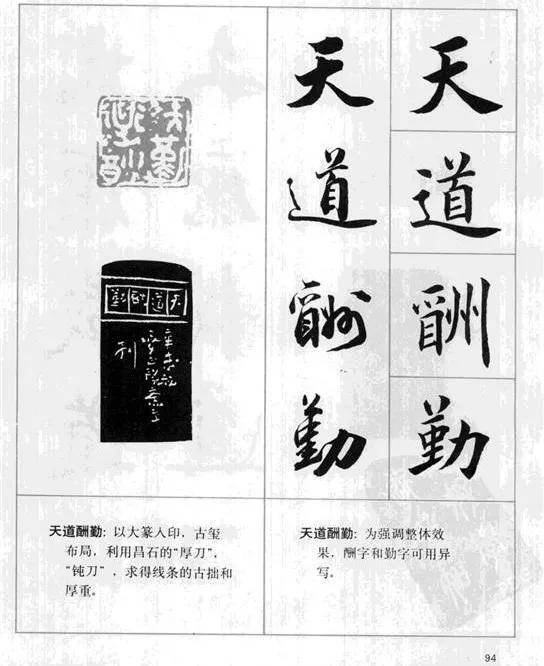 天道酬勤
天道酬勤
天道酬勤
天道酬勤: 以大篆入印, 古玺
布局, 利用昌石的“厚刀”,
“钝刀”, 求得线条的古拙和
厚重。
天道酬勤: 为强调整体效
果, 酬字和勤字可用异
写。
94